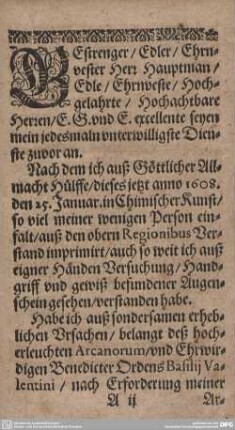 GEstrenger/ Edler/ Ehrn-
vester Herr Hauptman/
Edle/ Ehrnveste/ Hoch-
gelahrte/ Hochachtbare
Herren/ E. G. vnd E. excellente seyen
mein jedesmaln vnterwilligste Dien-
ste zuvor an.
Nach dem ich auß Göttlicher All-
macht Hülffe/ dieses jetzt anno 1608.
den 25. Januar. in Chimischer Kunst/
so viel meiner wenigen Person ein-
falt/ auß den obern Regionibus Ver-
stand imprimirt/ auch so weit ich auß
eigner Händen Versuchung/ Hand-
griff vnd gewiß befundener Augen-
schein gesehen/ verstanden habe.
Habe ich auß sondersamen erheb-
lichen Vrsachen/ belangt deß hoch-
erleuchten Arcanorum/ vnd Ehrwir-
digen Benedicter Ordens Basilij Va-
lentini/ nach Erforderung meiner
A ij Ar-